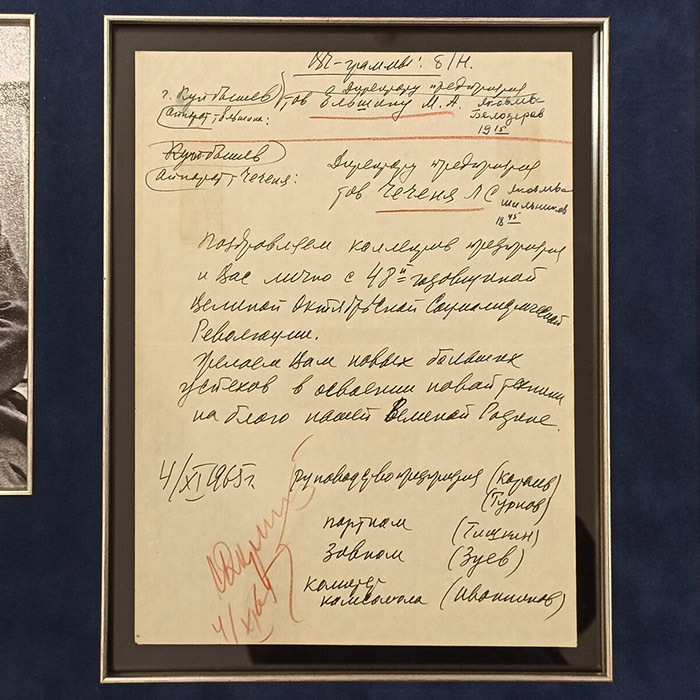 ВЧ-граммы: б/н.
г. Куйбышев Директору предприятия
Аппарат т. Ельшина: тов Ельшину М. А. Яковлева
Белозеров
19 15
Куйбышев
Аппарат т Чеченя: Директору предприятия
тов Чеченя Л С Яковлева
Шильников
18 45
Поздравляем коллектив предприятия
и Вас лично с 48й годовщиной
Великой Октябрьской Социалистической
Революции.
Желаем Вам новых больших
успехов в освоении новой техники
на благо нашей Великой Родине.
4/XI 1965 г. Руководство предприятия (Королев)
(Турков)
партком (Тишкин)
Завком (Зуев)
Комитет
комсомола
4/XI 65